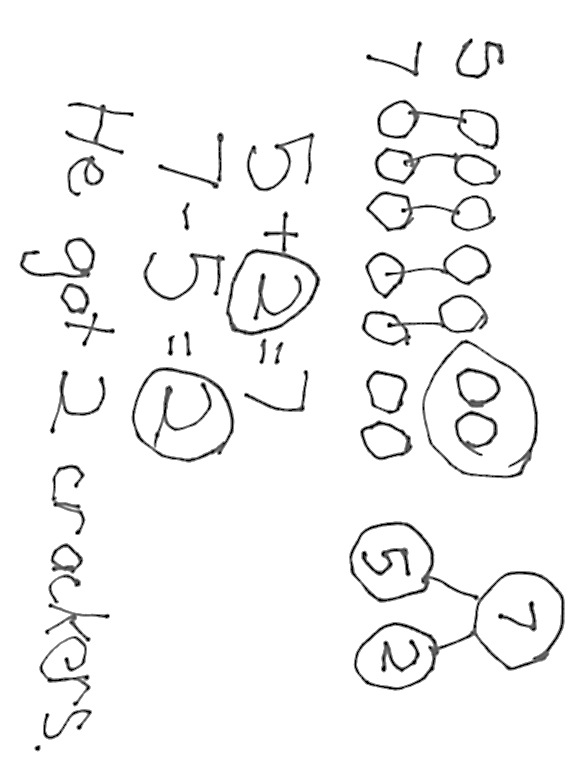 5
7
7
5 2
5 + 2 = 7
7 - 5 = 2
He got 2 crackers.